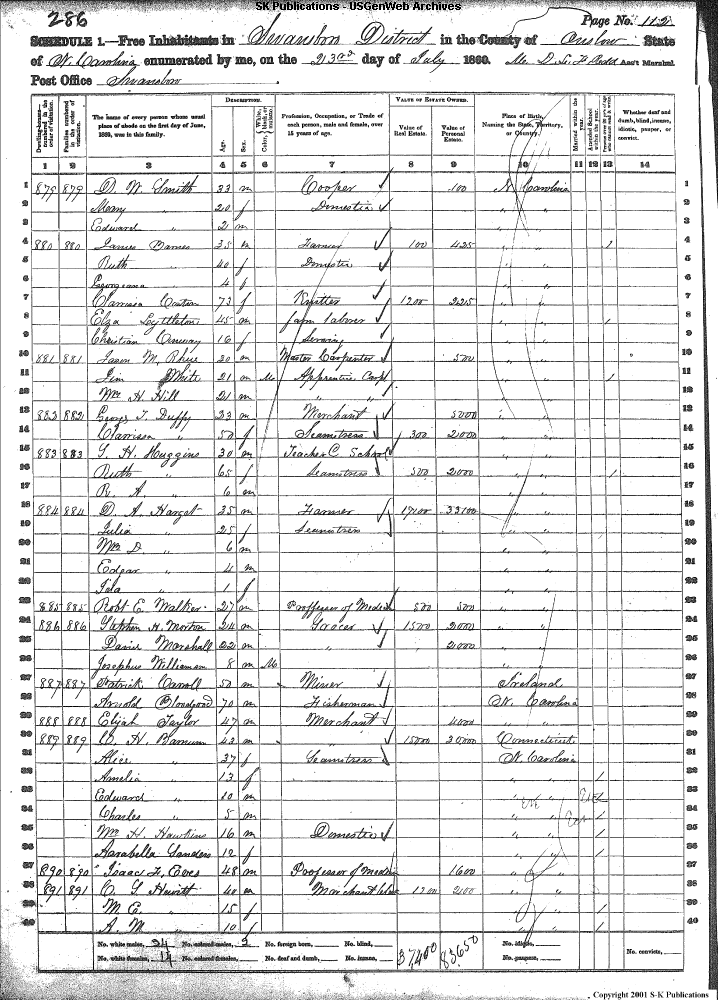 SK Publications - USGenWeb Archives
286
Page No. 112
SCHEDULE 1.—Free Inhabitants in Swansboro District in the County of Onslow State
of N. Carolina enumerated by me, on the 23rd day of July 1860. Ass't Marshal.
Post Office Swansboro
Dwelling-houses— numbered in the order of visitation.
Families numbered in the order of visitation.
The name of every person whose usual place of abode on the first day of June, 1860, was in this family.
DESCRIPTION.
Age.
Sex.
Profession, Occupation, or Trade of each person, male and female, over 15 years of age.
VALUE OF ESTATE OWNED.
Value of Real Estate.
Value of Personal Estate.
Place of Birth, Naming the State, Territory, or Country.
Married within the year.
Attended School within the year.
Whether deaf and dumb, blind, insane, idiotic, pauper, or convict.
1 2 3 4 5 6 7 8 9 10 11 12 13 14
1 879 879 D. W. Smith 33 m Cooper 100 N Carolina 1
2 Mary " 20 f Domestic " " 2
3 Edward " 2 m " " 3
4 880 880 James Barnes 35 m Farmer 100 425 " " 1 4
5 Ruth " 40 f Domestic " " 5
6 Georgeana " 4 f " " 6
7 Clarrissa 73 f Knitter 1200 225 " " 7
8 Elza Lyttleton 45 m farm laborer " " 1 8
9 Christian 16 f " " 9
10 881 881 Jason M. Rhue 30 m Master Carpenter 500 " " 10
11 Jim White 21 m Mu Apprentice Carp " " 1 11
12 Wm H. Hill 21 m " " " " 12
13 882 882 George T. Duffy 23 m Merchant 5000 " " 13
14 Clarrissa " 50 f Seamstress 300 2000 " " 14
15 883 883 Huggins 30 m Teacher C. School " " 15
16 Ruth " 65 f Seamstress 500 2000 " " 1 16
17 R. A. " 6 m " " 17
18 884 884 D. A. Harget 35 m Farmer 17100 33100 " " 18
19 Julia " 25 f Seamstress " " 19
20 Wm D " 6 m " " 20
21 Edgar " 4 m " " 21
22 Ida " 1 f " " 22
23 885 885 Robt E. Walker 27 m Proffessor of Medicin 500 500 " " 23
24 886 886 Stephen H. Morton 24 m Grocer 1500 2000 " " 24
25 Daniel Marshall 22 m " 2000 " " 25
26 Josephus Williamson 8 m Mu " " 26
27 887 887 Patrick Carroll 50 m Miner Ireland 27
28 Arnold Bloodgood 70 m Fisherman N. Carolina 28
29 888 888 Elijah Taylor 47 m Merchant 4000 " " 29
30 889 889 Barnum 43 m " 15000 30000 Connecticut 30
31 Alice " 37 f Seamstress N. Carolina 31
32 Amelia " 13 f " " 1 32
33 Edward " 10 m " " 1 33
34 Charles " 5 m " " 1 34
35 Wm H. Hawkins 16 m Domestic " " 1 35
36 Aarabella Sanders 12 f " " 1 36
37 890 890 Isaac 48 m Professor of Medicin 1600 " " 37
38 891 891 Hewitt 40 m Merchant 1200 200 " " 38
39 M. E. " 15 f " " 1 39
40 A. M. " 10 f " " 1 40
No. white males, 24 No. colored males, 2 No. foreign born, No. blind, No. idiotic, No. convicts,
No. white females, 14 No. colored females, No. deaf and dumb, No. insane, 37400 83650 No. paupers,
Copyright 2001 S-K Publications